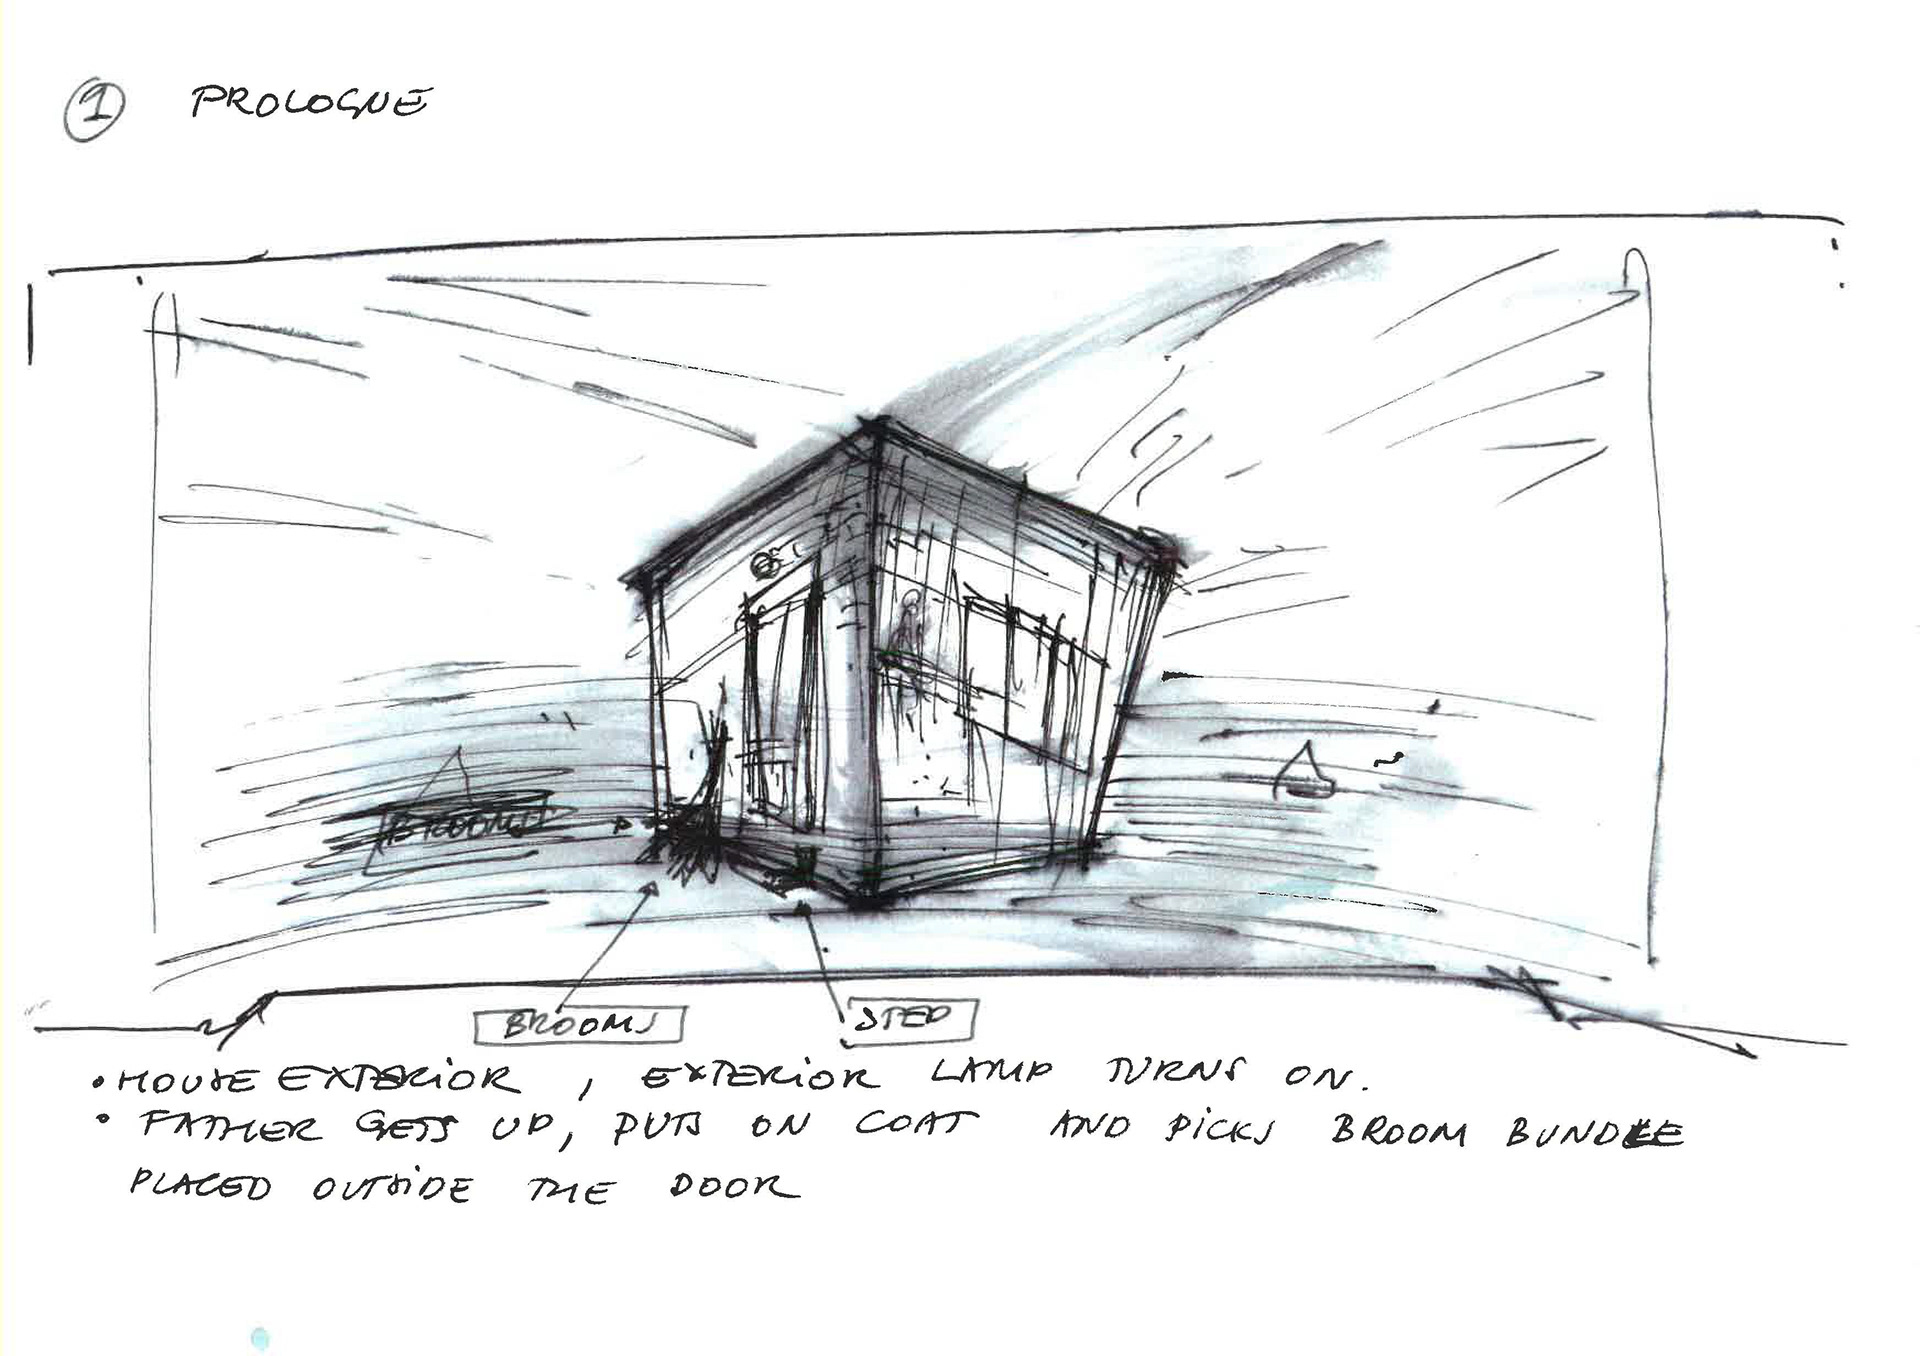 1 PROLOGUE
BROOMS
BROOMS STEP
• HOUSE EXTERIOR , EXTERIOR LAMP TURNS ON.
• FATHER GETS UP, PUTS ON COAT AND PICKS BROOM BUNDLE
PLACED OUTSIDE THE DOOR